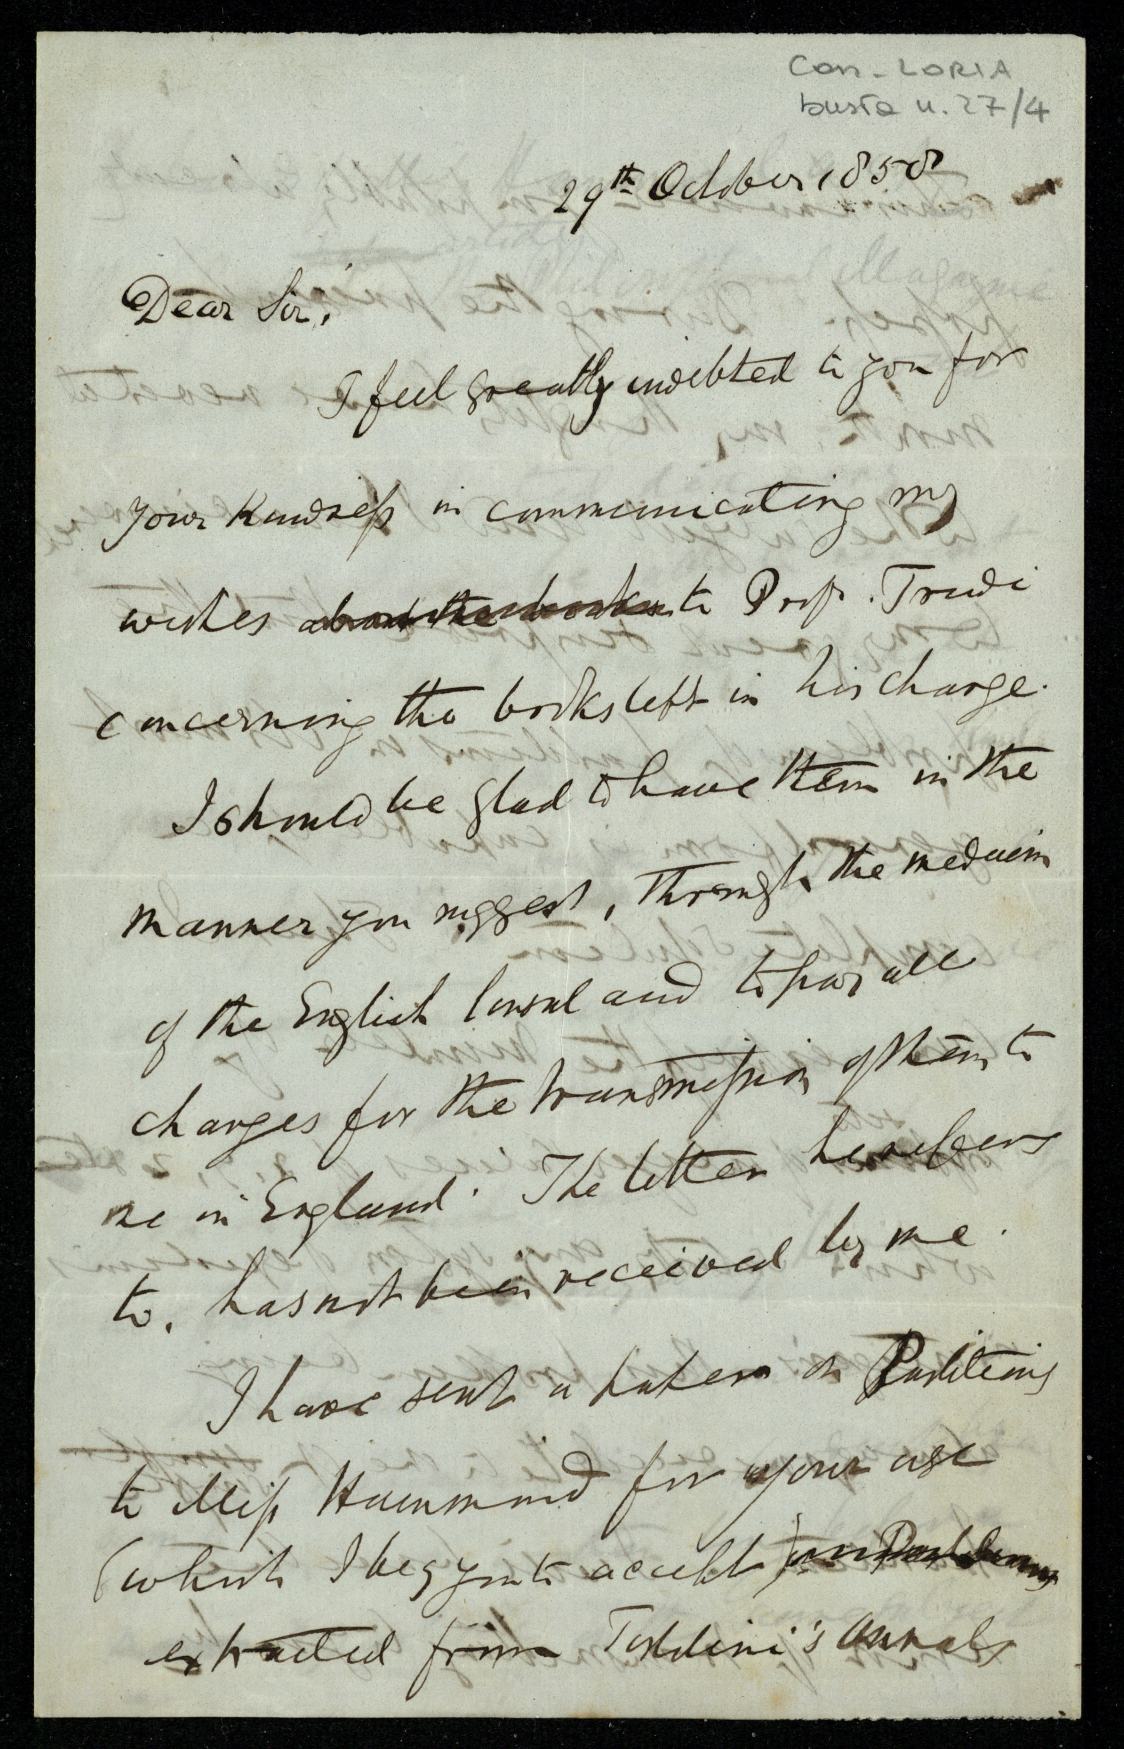 Con. LORIA
busta n. 27/4
29th October 1858
Dear Sir,
I feel greatly indebted to you for
your kindness in communicating my
wishes about the books to Prof. Trudi
concerning the books left in his charge.
I should be glad to have them in the
manner you suggest, through the medium
of the English Consul and to pay all
charges for the transmission of them to
me in England. The letter he refers
to, has not been received by me.
I have sent a paper on Partitions
to Miss Hammond for your use
(which I beg you to accept) on Partitions
extracted from Tortolini's Annals